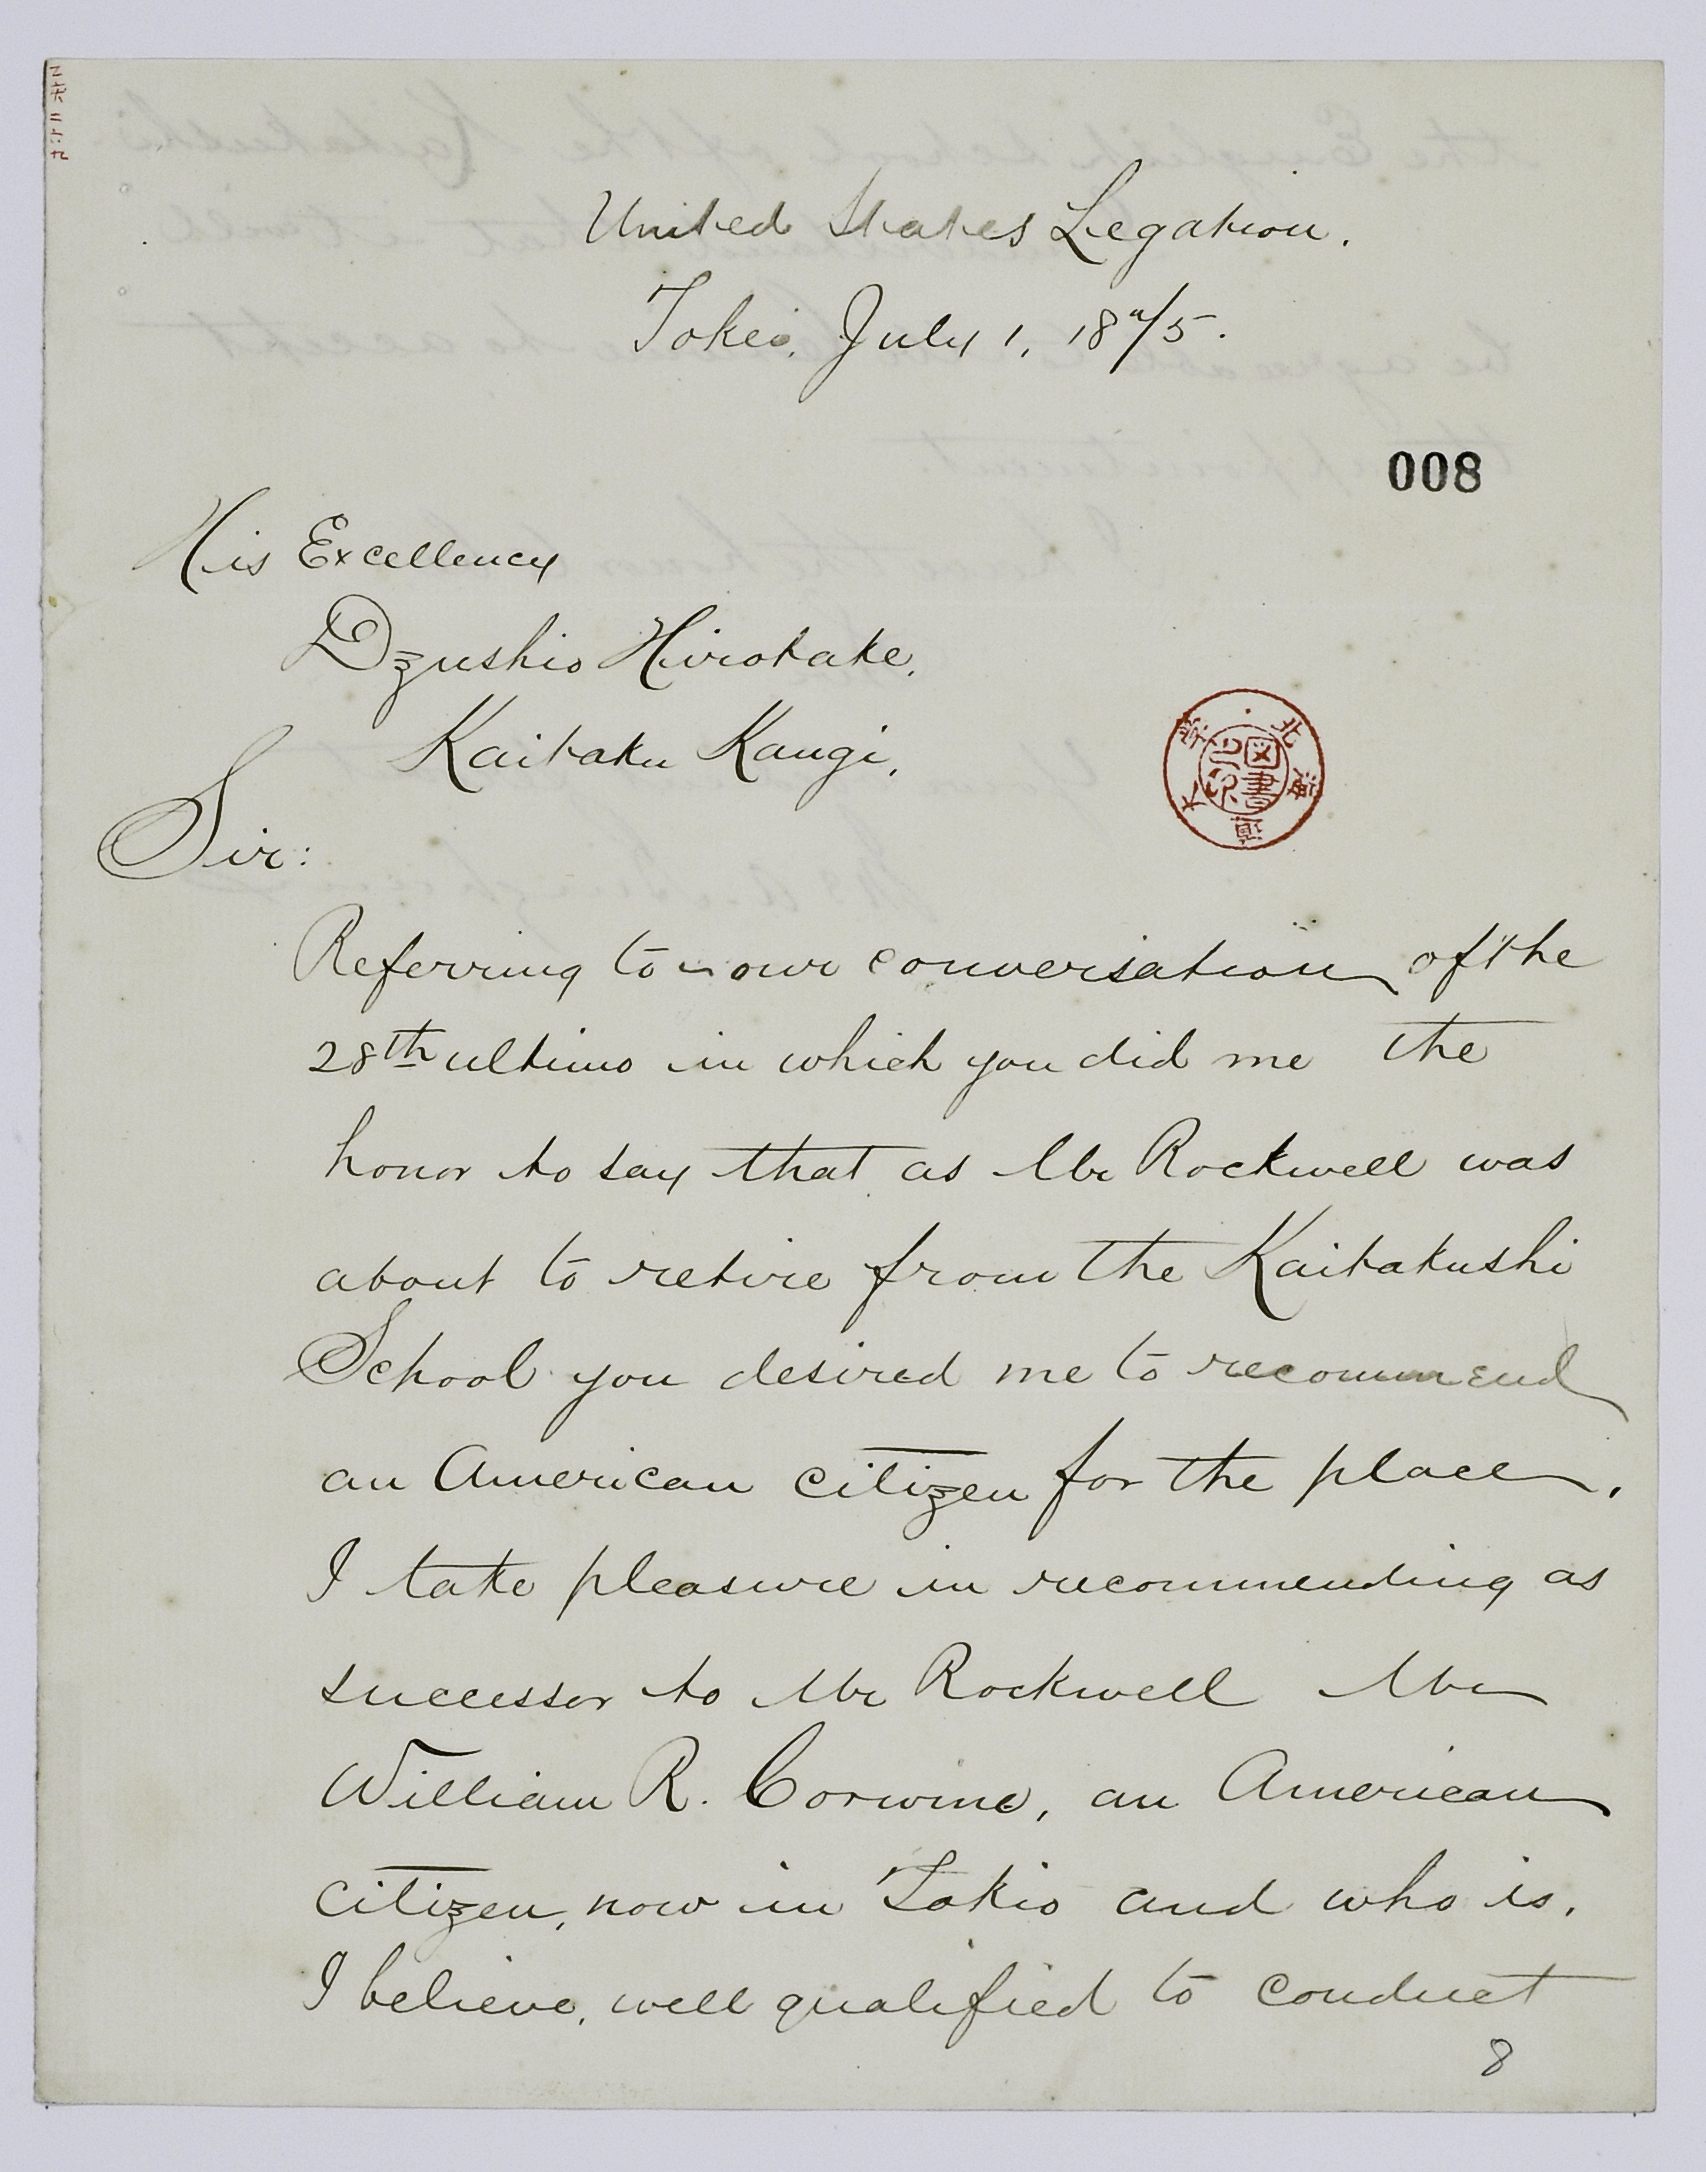 United States Legation.
Tokei, July 1, 187/5.
008
His Excellency
Dzushio Hirotake,
Kaitaku Kangi,
北海道大学
図書之印
Sir:
Referring to our conversation of the
28th ultimo in which you did me the
honor to say that as Mr Rockwell was
about to retire from the Kaitakushi
School you desired me to recommend
an American citizen for the place,
I take pleasure in recommending as
successor to Mr Rockwell Mr
William R. Corwine, an American
citizen, now in Tokio and who is,
I believe, well qualified to conduct
8